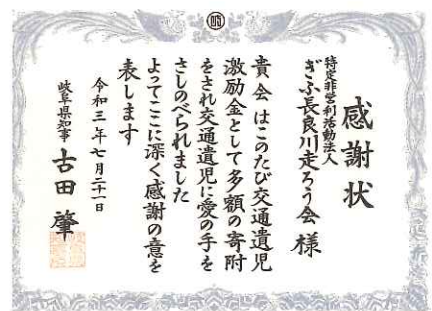 感謝状
特定非営利活動法人
ぎふ長良川走ろう会 様
貴会はこのたび交通遺児
激励金として多額の寄附
をされ交通遺児に愛の手を
さしのべられました
よってここに深く感謝の意を
表します
令和三年七月二十一日
岐阜県知事 古田 肇